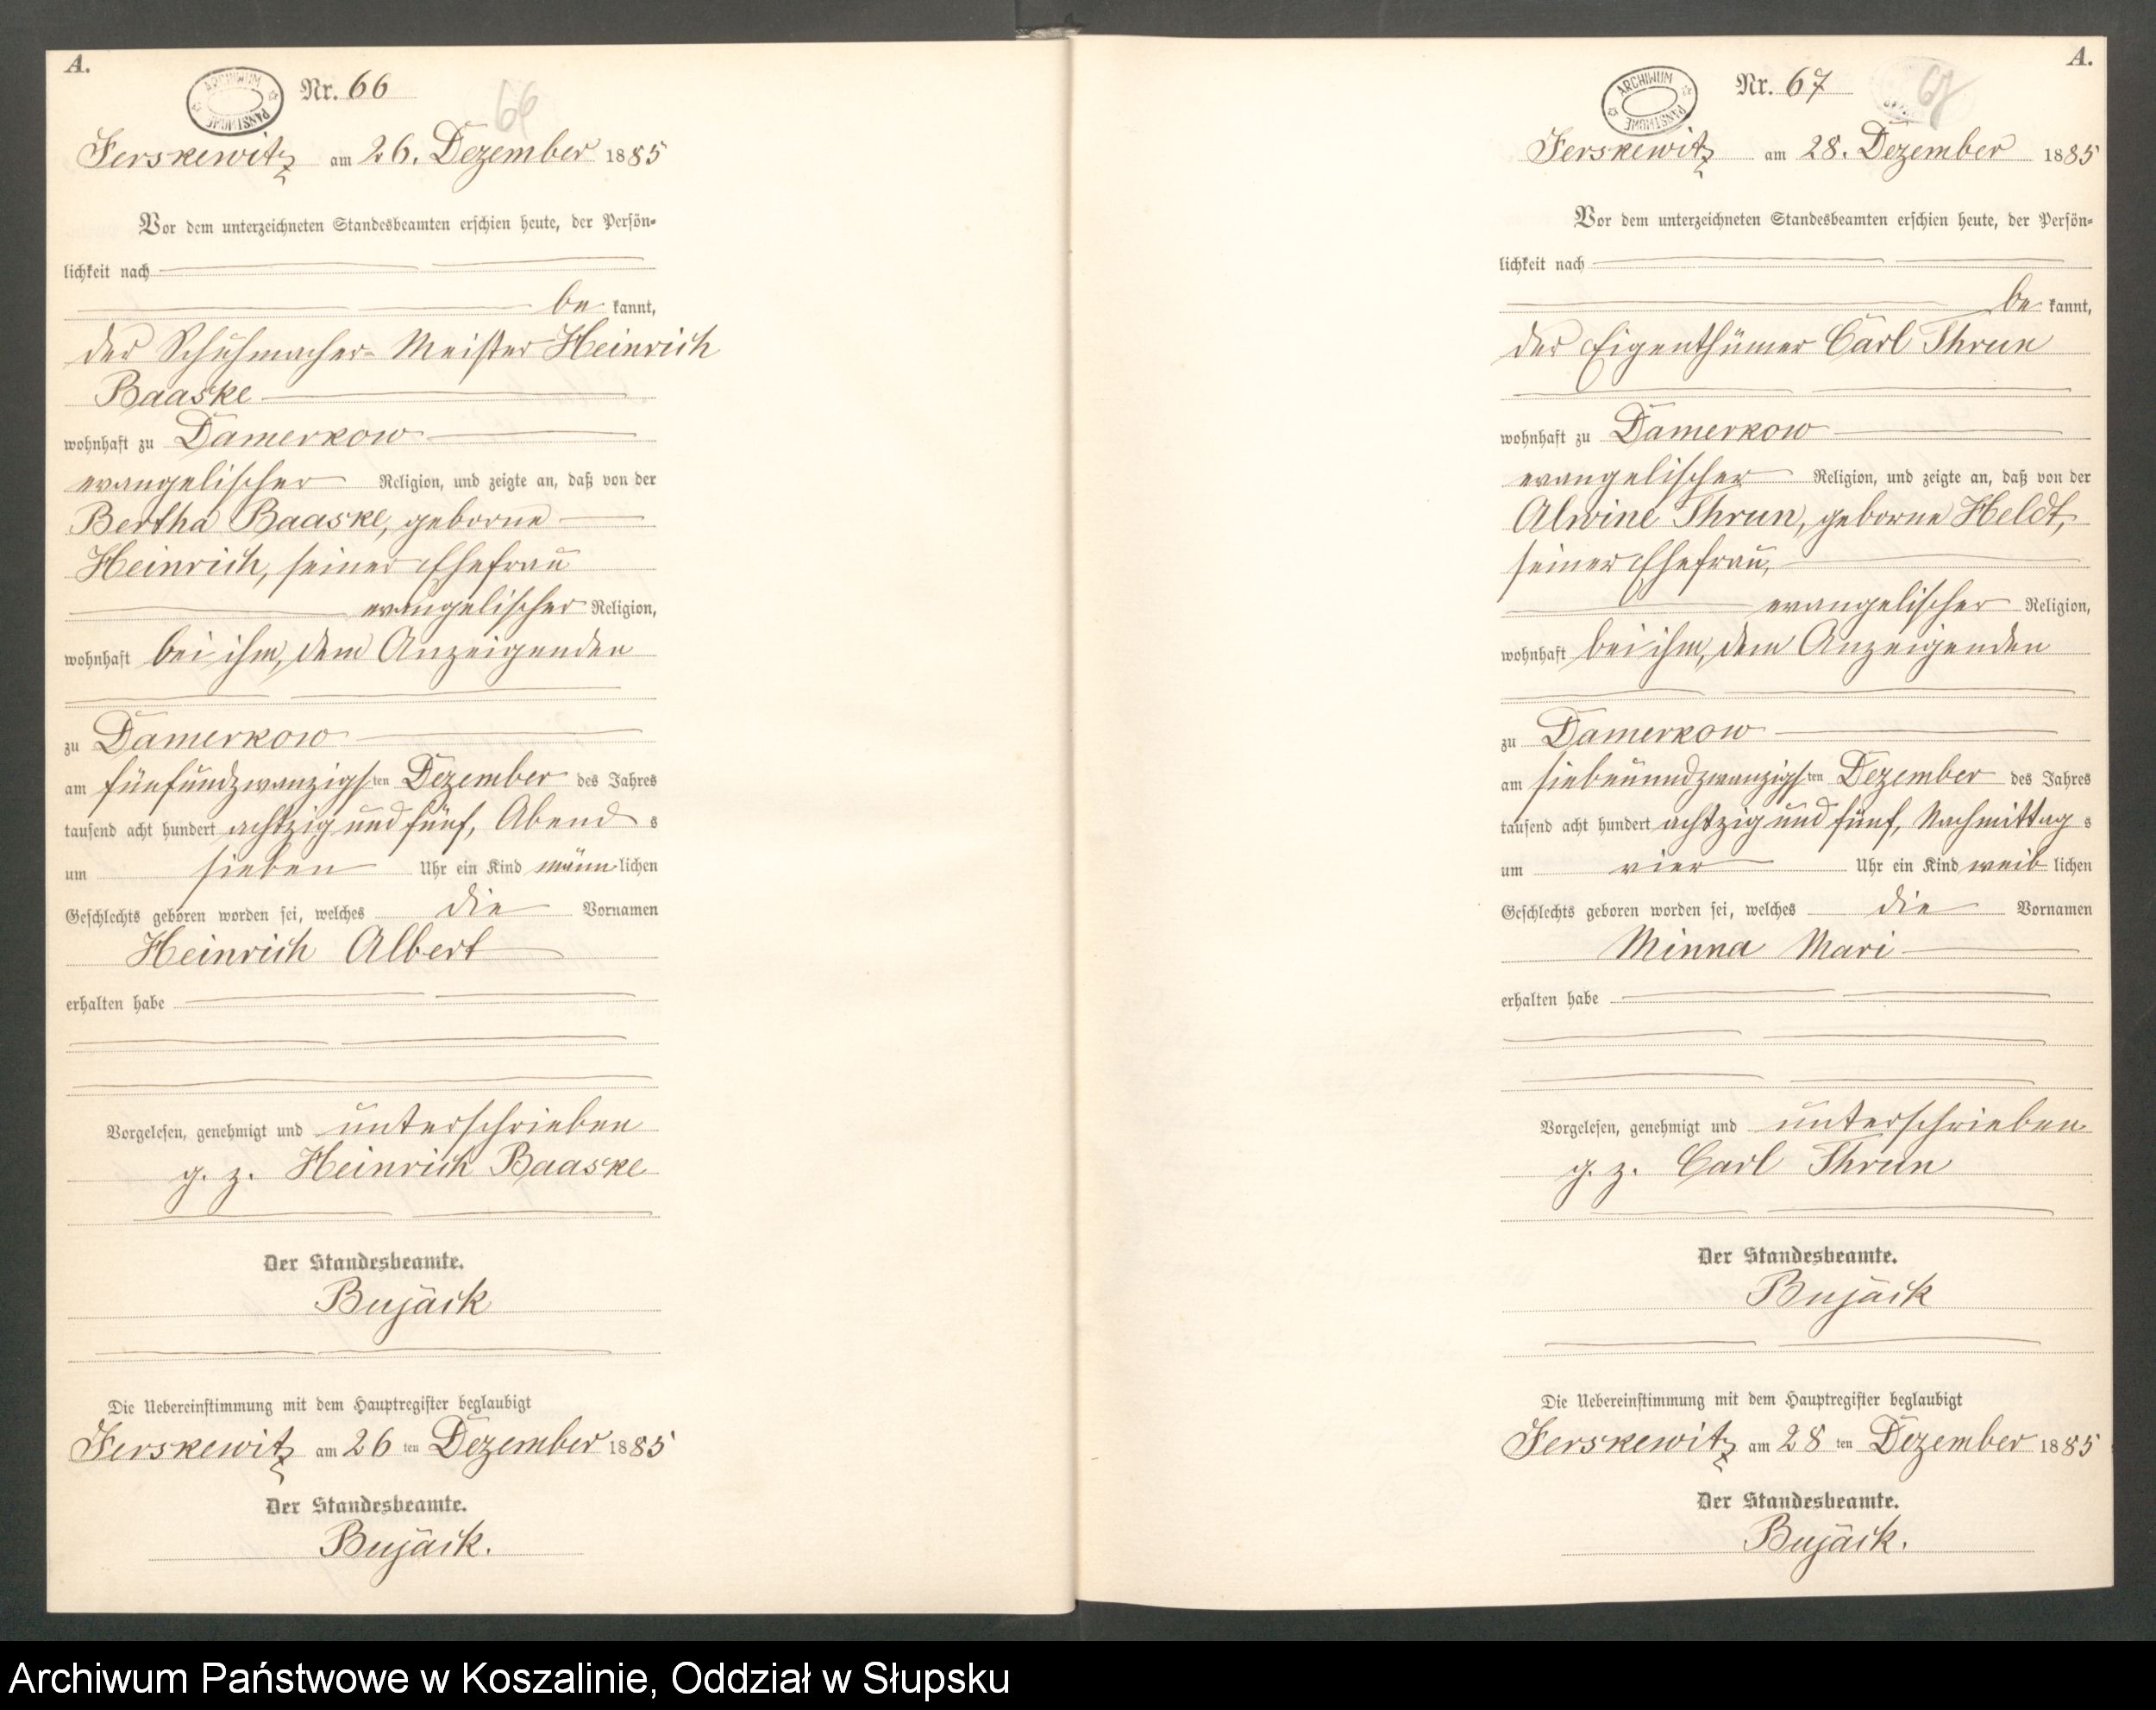 A.
ARCHIWUM PAŃSTWOWE
Nr. 66
66
Jerskewitz am 26. Dezember 1885
Vor dem unterzeichneten Standesbeamten erschien heute, der Persön-
lichkeit nach
be kannt,
der Schuhmacher-Meister Heinrich
Baaske
wohnhaft zu Damerkow
evangelischer Religion, und zeigte an, daß von der
Bertha Baaske, geborne
Heinrich, seiner Ehefrau
evangelischer Religion,
wohnhaft bei ihm, dem Anzeigenden
zu Damerkow
am fünfundzwanzigsten Dezember des Jahres
tausend acht hundert achtzig und fünf, Abends
um sieben Uhr ein Kind männlichen
Geschlechts geboren worden sei, welches die Vornamen
Heinrich Albert
erhalten habe
Vorgelesen, genehmigt und unterschrieben
g. z. Heinrich Baaske
Der Standesbeamte.
Bujack
Die Uebereinstimmung mit dem Hauptregister beglaubigt
Jerskewitz am 26 ten Dezember 1885
Der Standesbeamte.
Bujack.
A.
ARCHIWUM PAŃSTWOWE
Nr. 67
67
Jerskewitz am 28. Dezember 1885
Vor dem unterzeichneten Standesbeamten erschien heute, der Persön-
lichkeit nach
be kannt,
der Eigenthümer Carl Thrun
wohnhaft zu Damerkow
evangelischer Religion, und zeigte an, daß von der
Alwine Thrun, geborne Heldt,
seiner Ehefrau,
evangelischer Religion,
wohnhaft bei ihm, dem Anzeigenden
zu Damerkow
am siebenundzwanzigsten Dezember des Jahres
tausend acht hundert achtzig und fünf, Nachmittags
um vier Uhr ein Kind weiblichen
Geschlechts geboren worden sei, welches die Vornamen
Minna Mari
erhalten habe
Vorgelesen, genehmigt und unterschrieben
g. z. Carl Thrun
Der Standesbeamte.
Bujack
Die Uebereinstimmung mit dem Hauptregister beglaubigt
Jerskewitz am 28 ten Dezember 1885
Der Standesbeamte.
Bujack.
Archiwum Państwowe w Koszalinie, Oddział w Słupsku